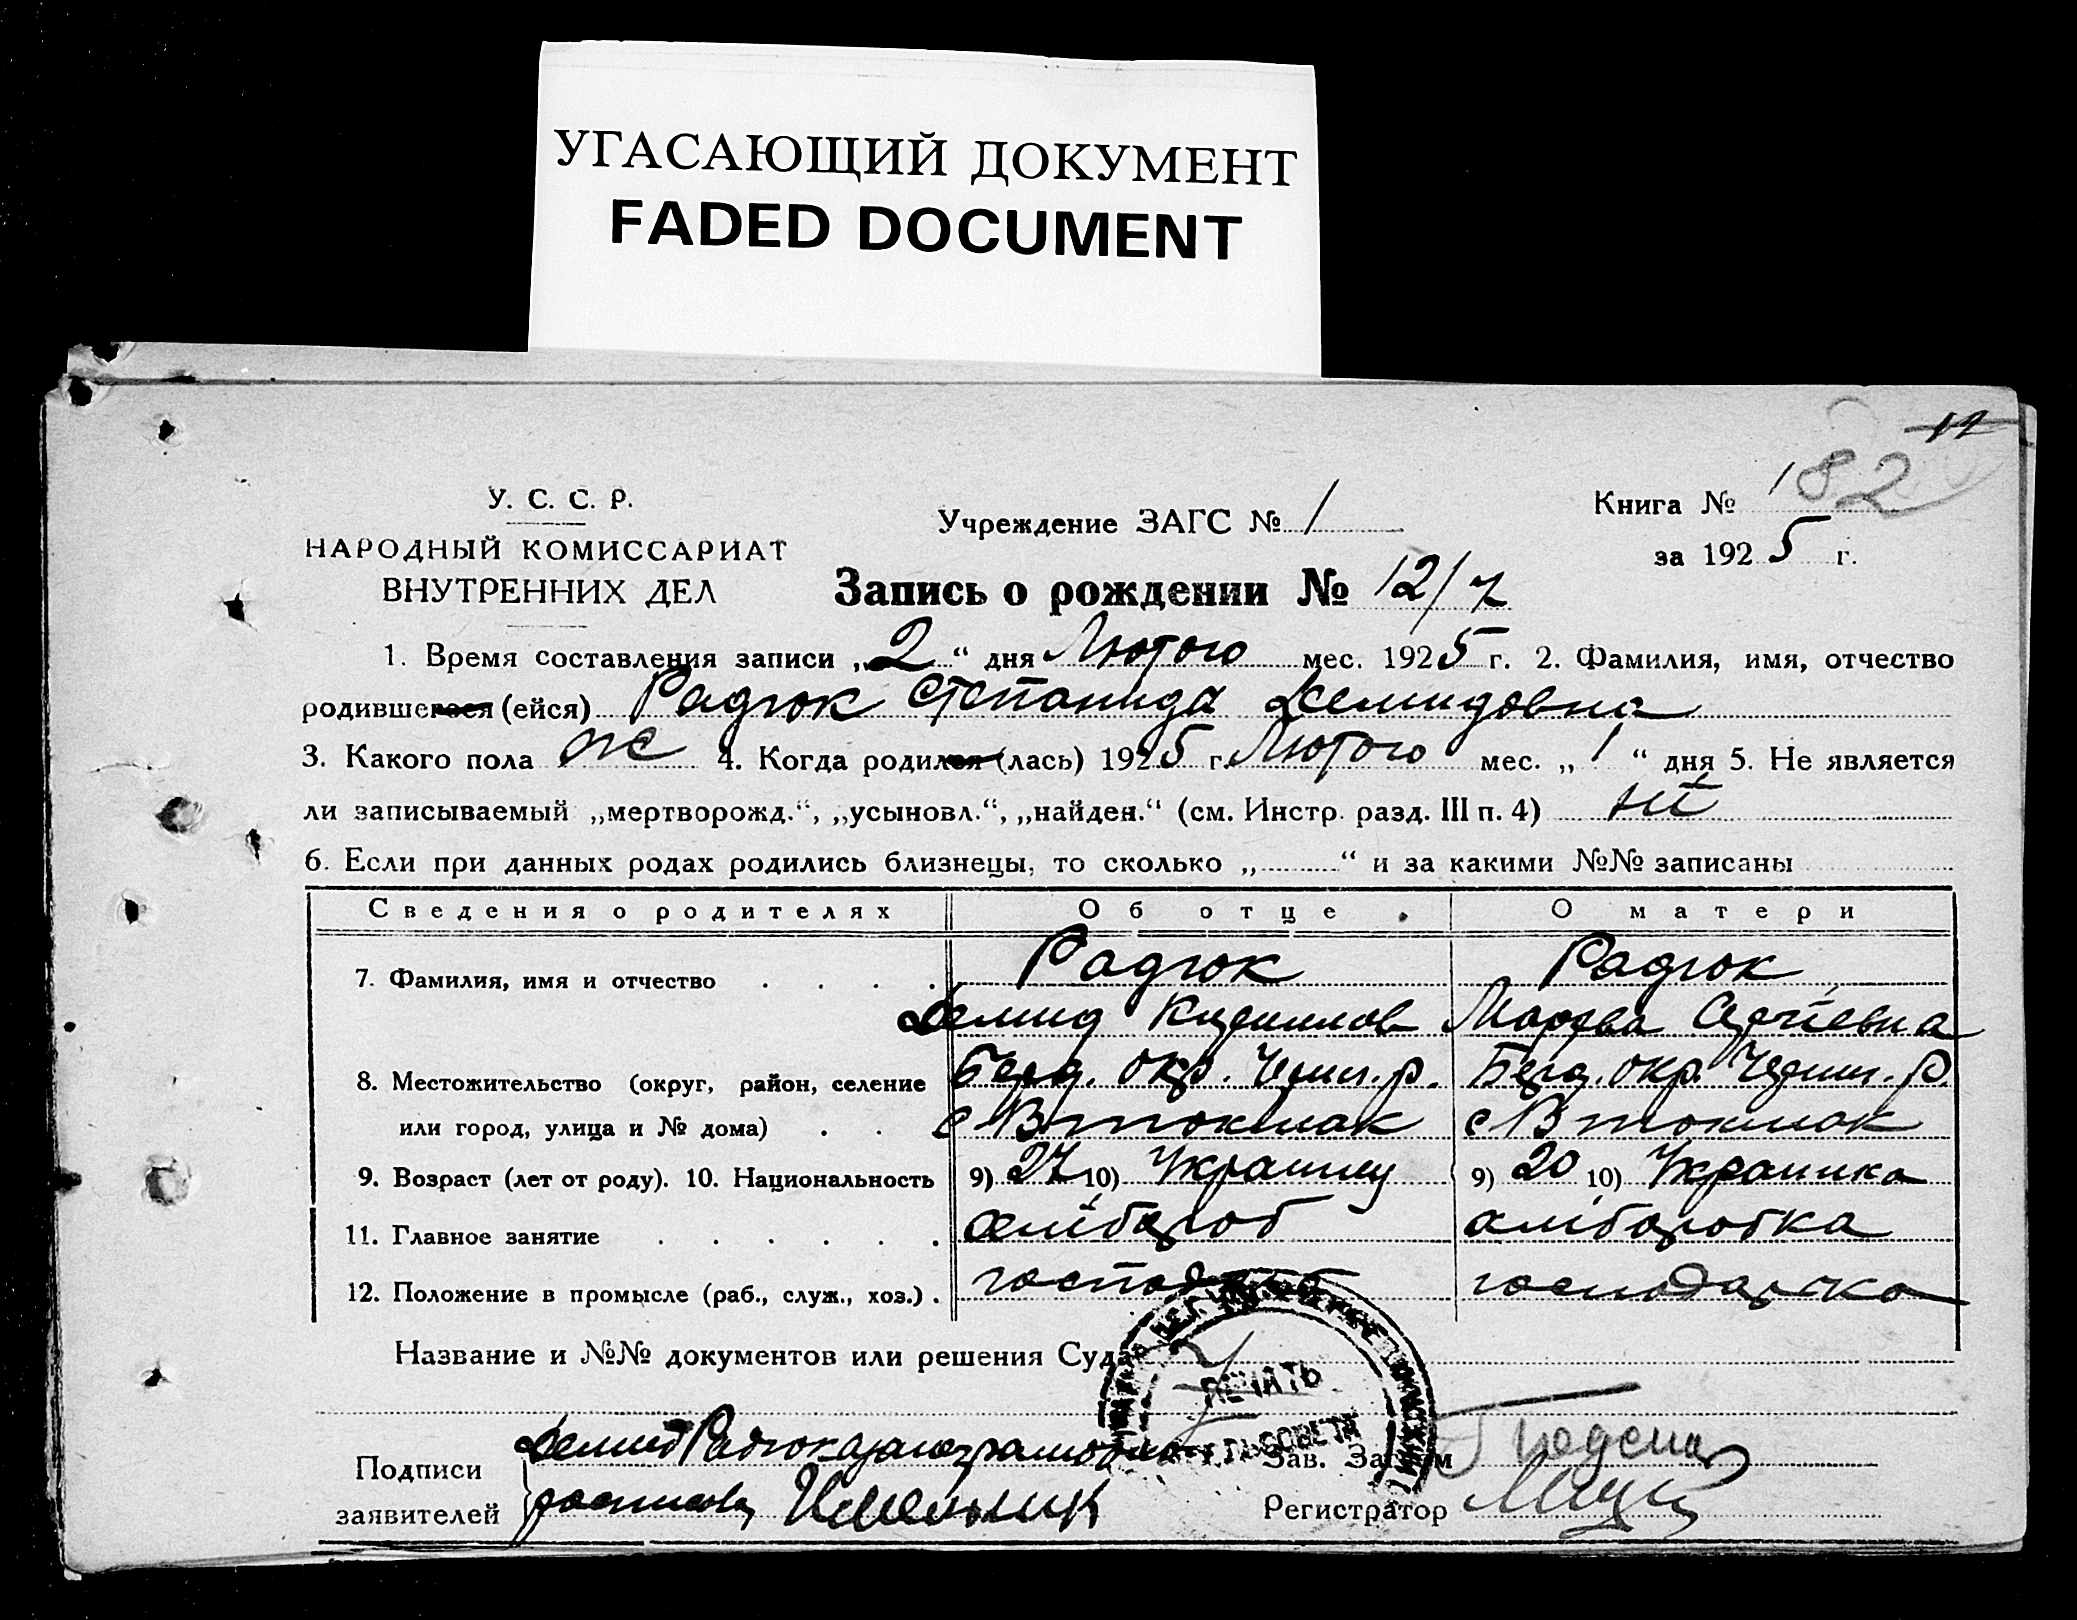 УГАСАЮЩИЙ ДОКУМЕНТ
FADED DOCUMENT
12
У. С. С. Р.
НАРОДНЫЙ КОМИССАРИАТ
ВНУТРЕННИХ ДЕЛ
Учреждение ЗАГС № 1
Книга № 182
за 1925 г.
Запись о рождении № 12/7
1. Время составления записи „2“ дня Лютого мес. 1925 г. 2. Фамилия, имя, отчество
родившегося (ейся) Радюк Степанида Демидовна
3. Какого пола ж 4. Когда родился (лась) 1925 г. Лютого мес. „1“ дня 5. Не является
ли записываемый „мертворожд.“, „усыновл.“, „найден.“ (см. Инстр. разд. III п. 4) ні
6. Если при данных родах родились близнецы, то сколько „ “ и за какими №№ записаны
Сведения о родителях Об отце О матери
7. Фамилия, имя и отчество Радюк Радюк
Демид Кирилов Марфа Сергіевна
8. Местожительство (округ, район, селение Берд. окр. р. Берд. окр. р.
или город, улица и № дома) с В токмак с В токмак
9. Возраст (лет от роду). 10. Национальность 9) 27 10) Украинец 9) 20 10) Украинка
11. Главное занятие хлібороб хліборобка
12. Положение в промысле (раб., служ., хоз.) господарка
Название и №№ документов или решения Суда
ПЕЧАТЬ
СЕЛЬСОВЕТА
Подписи
заявителей
Демид Радюк а за неграмотно
Зав. Загсом
Регистратор